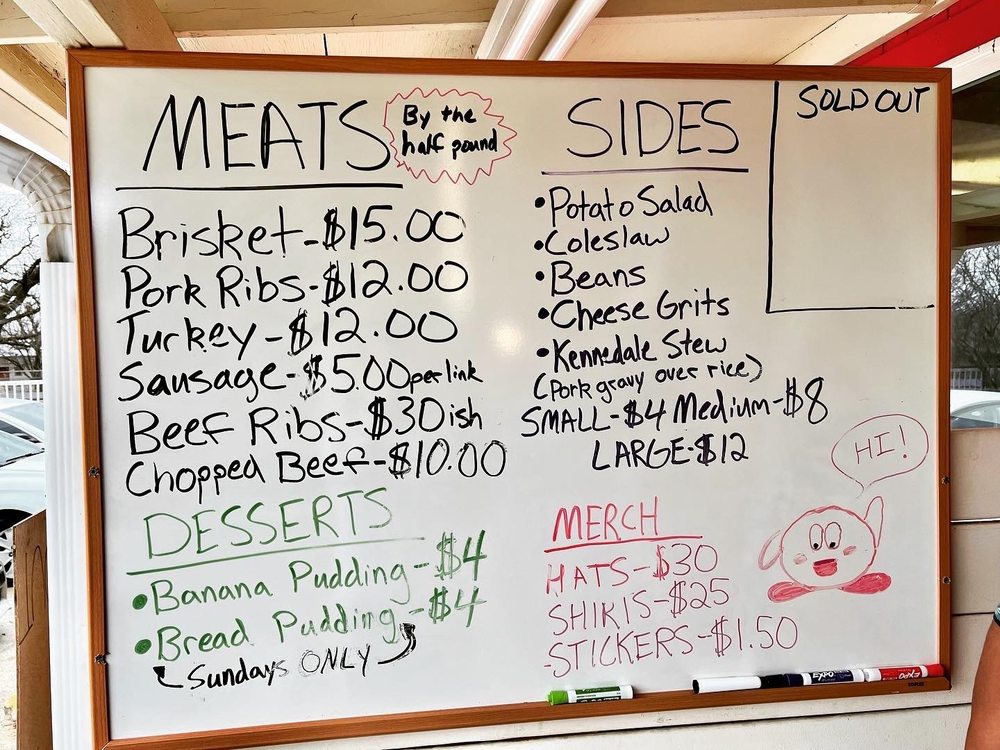 MEATS
By the
half pound
Brisket-$15.00
Pork Ribs-$12.00
Turkey-$12.00
Sausage-$5.00 per link
Beef Ribs-$30ish
Chopped Beef-$10.00
DESSERTS
•Banana Pudding-$4
•Bread Pudding-$4
Sundays ONLY
SIDES
•Potato Salad
•Coleslaw
•Beans
•Cheese Grits
•Kennedale Stew
(Pork gravy over rice)
SMALL-$4 Medium-$8
LARGE-$12
SOLD OUT
HI!
MERCH
HATS-$30
SHIRTS-$25
-STICKERS-$1.50
EXPO
EXPO